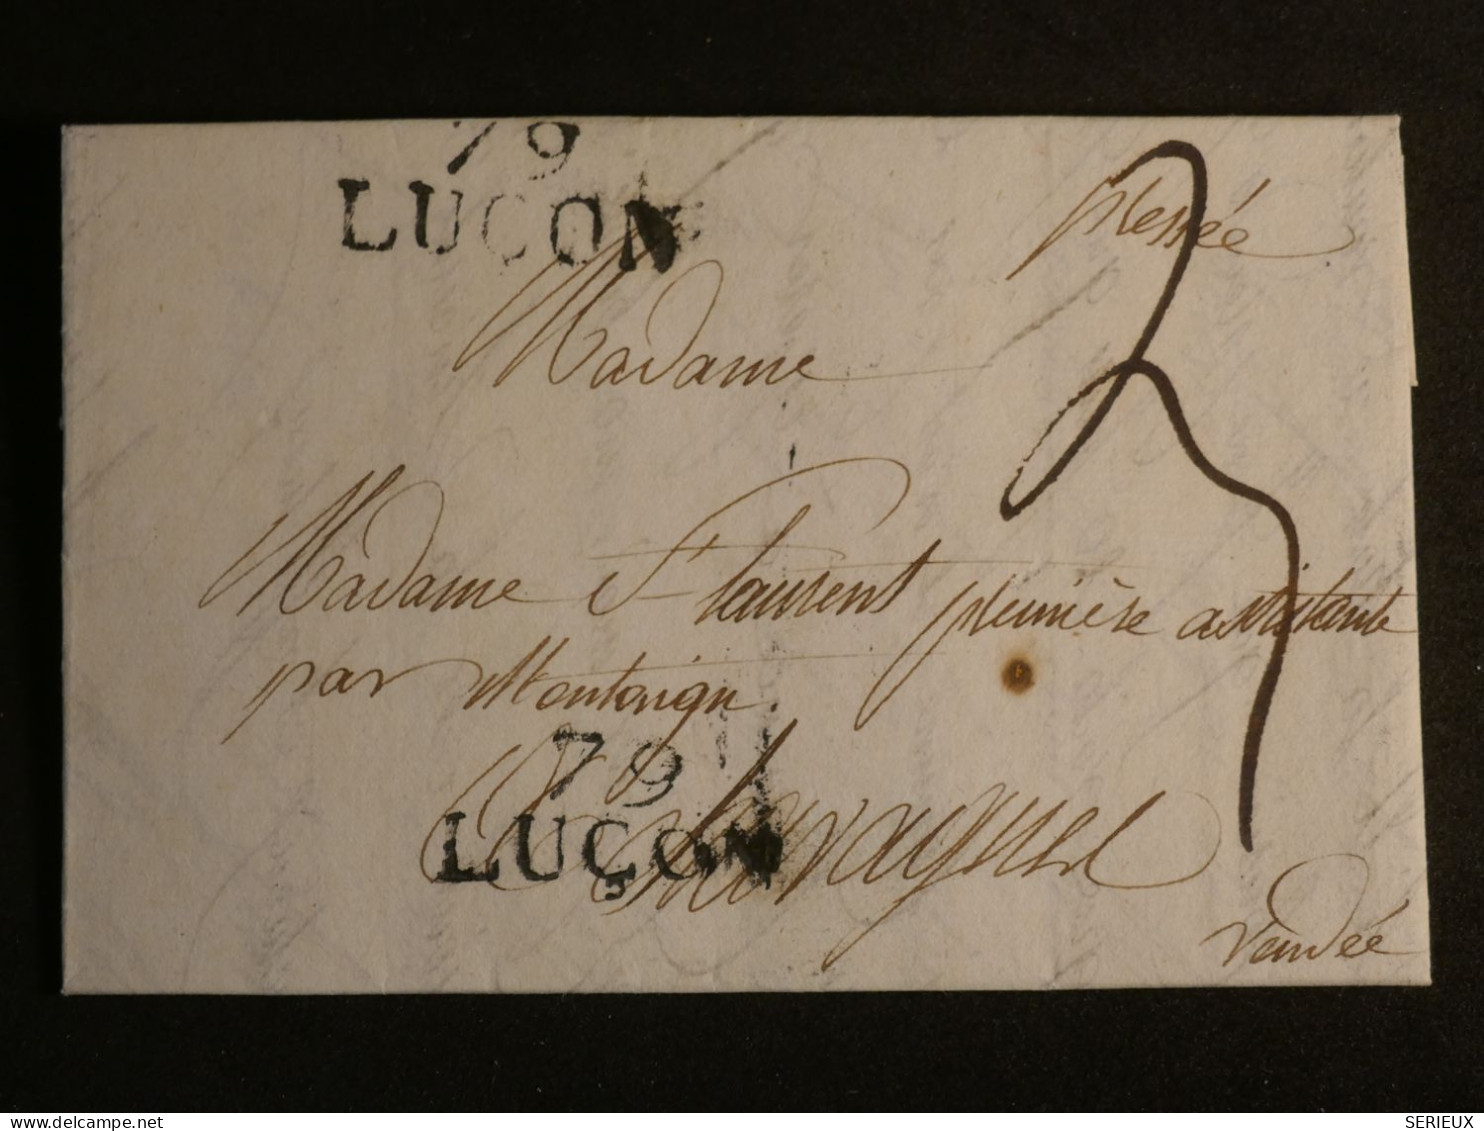 79
LUÇON
pressée
Madame
Madame St Laurent première assistante
par Montaigu.
79
LUÇON
à Chavagnes
Vendée
delcampe.net
SERIEUX